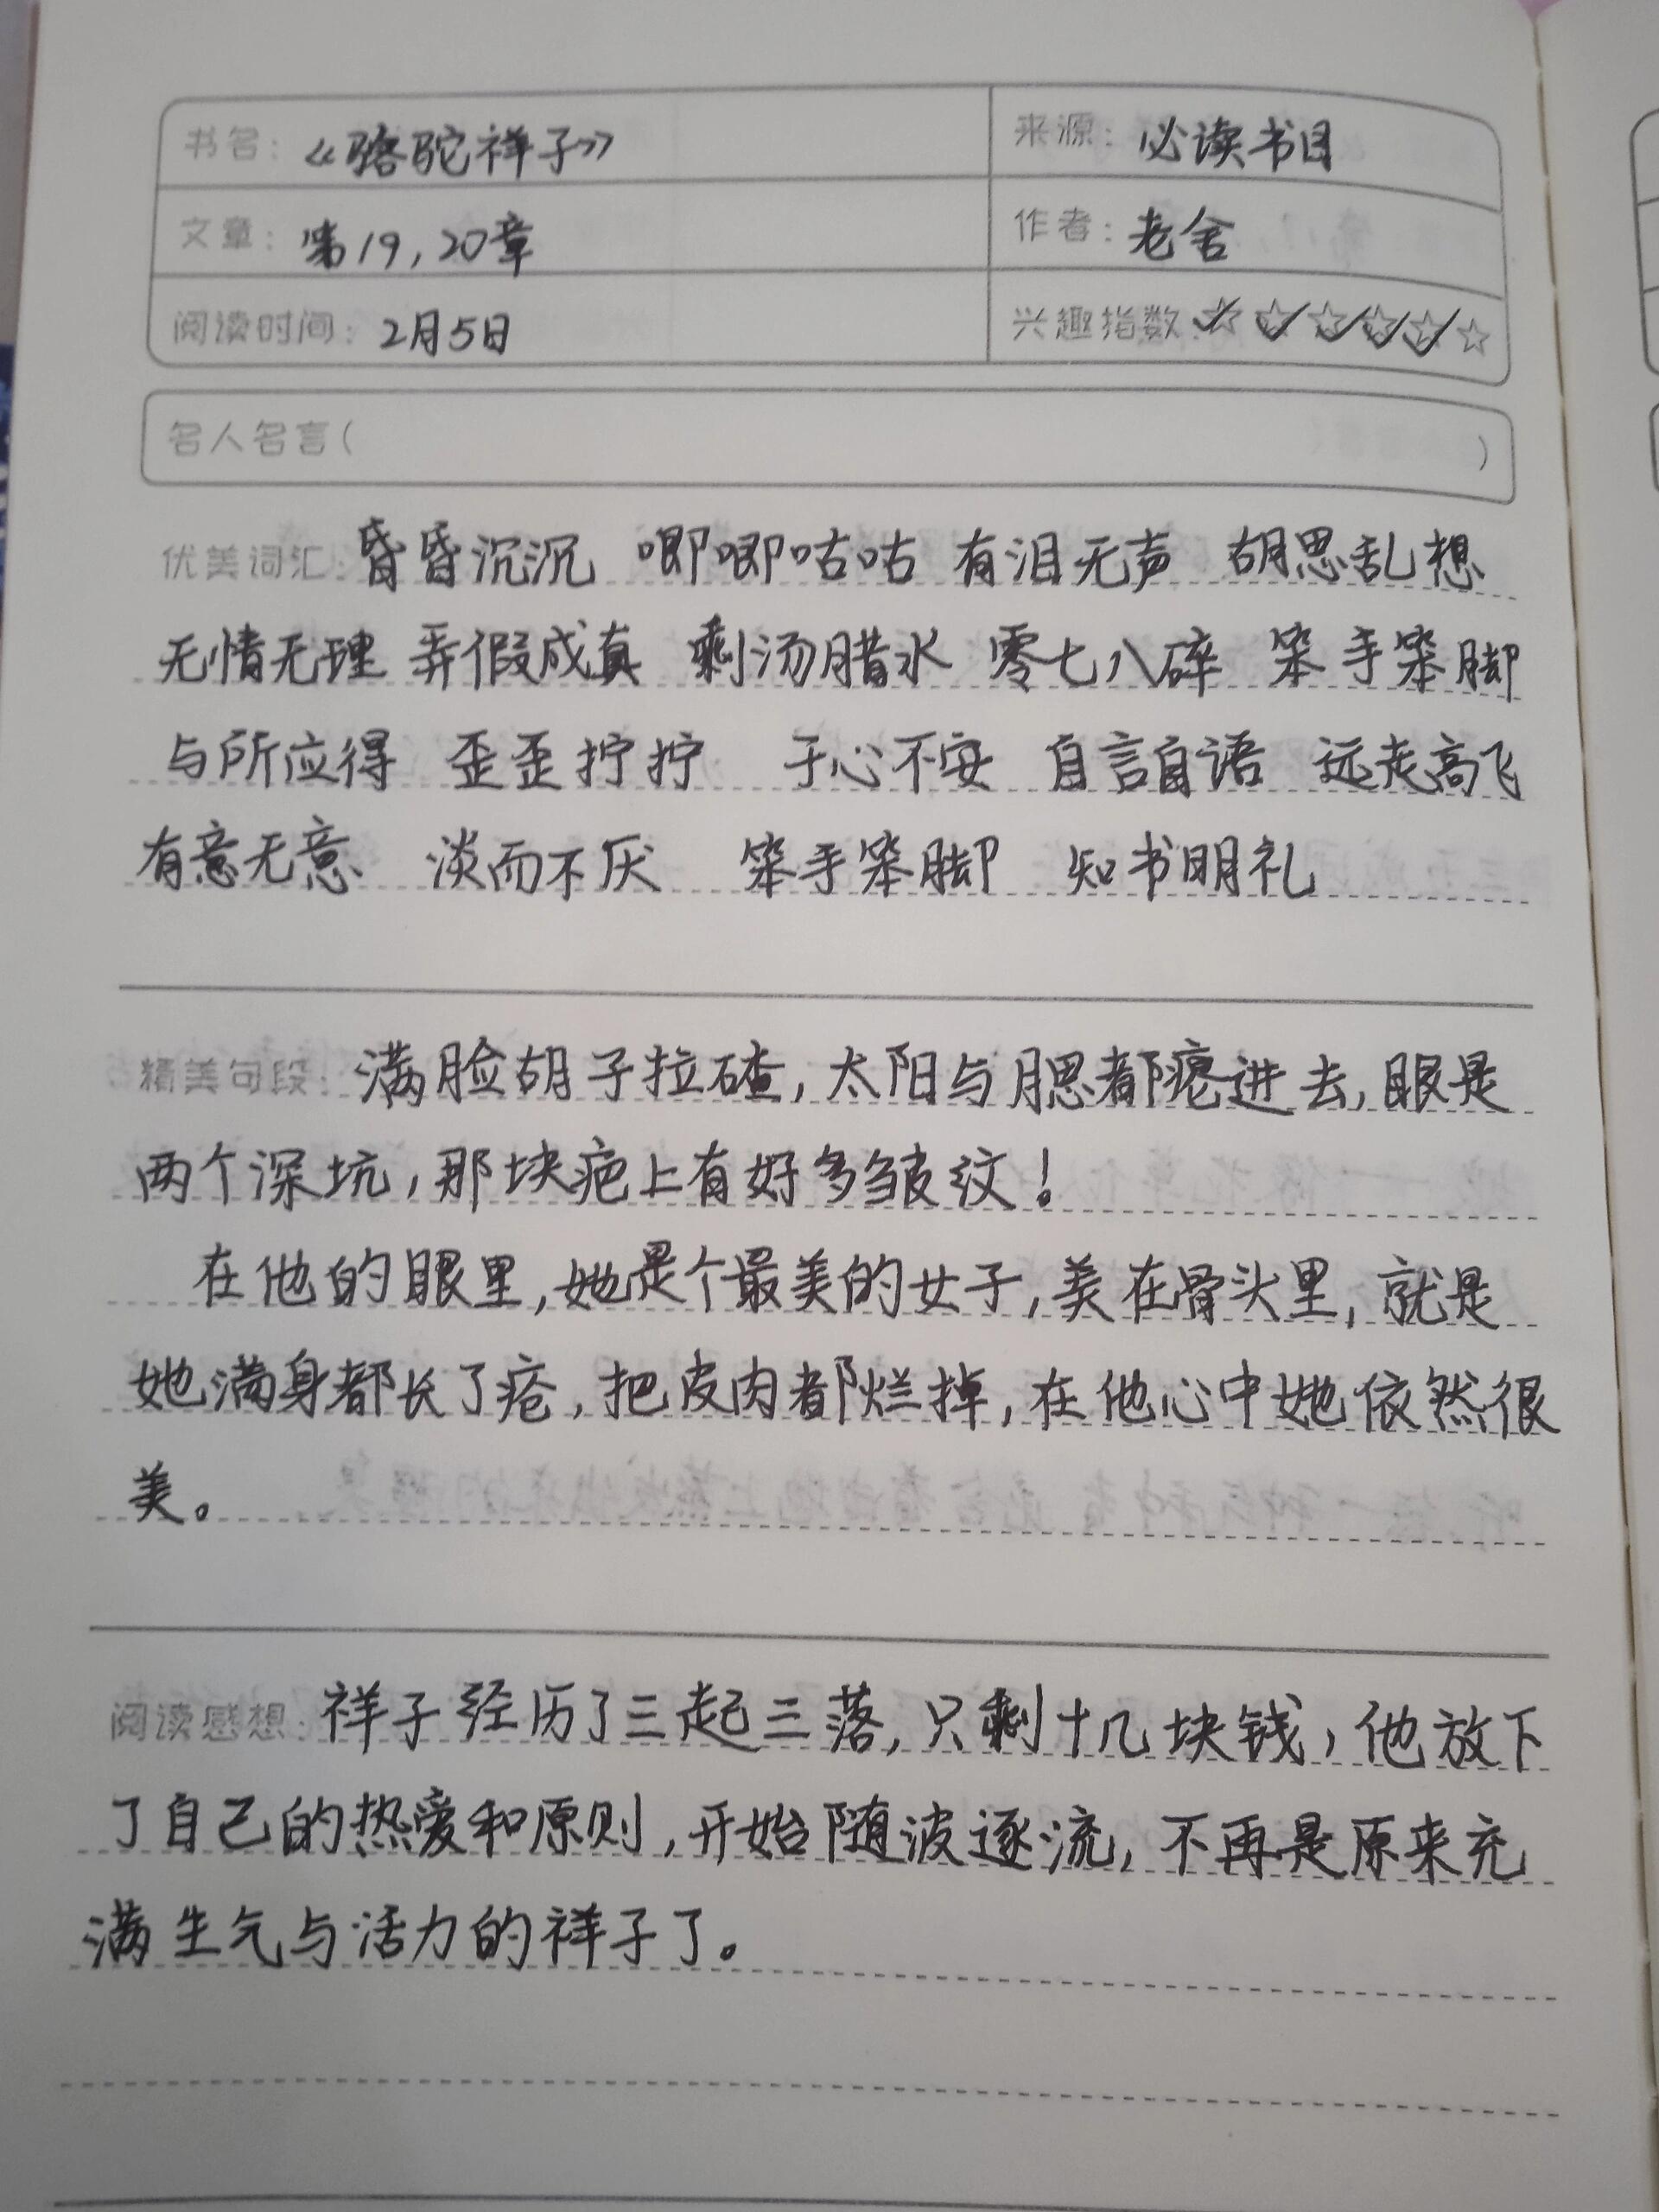 书名：《骆驼祥子》 来源：必读书目
文章：第19，20章 作者：老舍
阅读时间：2月5日 兴趣指数：
名人名言（ ）
优美词汇：昏昏沉沉 唧唧咕咕 有泪无声 胡思乱想
无情无理 弄假成真 剩汤腊水 零七八碎 笨手笨脚
与所应得 歪歪拧拧 于心不安 自言自语 远走高飞
有意无意 淡而不厌 笨手笨脚 知书明礼
精美句段：满脸胡子拉碴，太阳与腮都瘪进去，眼是
两个深坑，那块疤上有好多皱纹！
在他的眼里，她是个最美的女子，美在骨头里，就是
她满身都长了疮，把皮肉都烂掉，在他心中她依然很
美。
阅读感想：祥子经历了三起三落，只剩十几块钱，他放下
了自己的热爱和原则，开始随波逐流，不再是原来充
满生气与活力的祥子了。